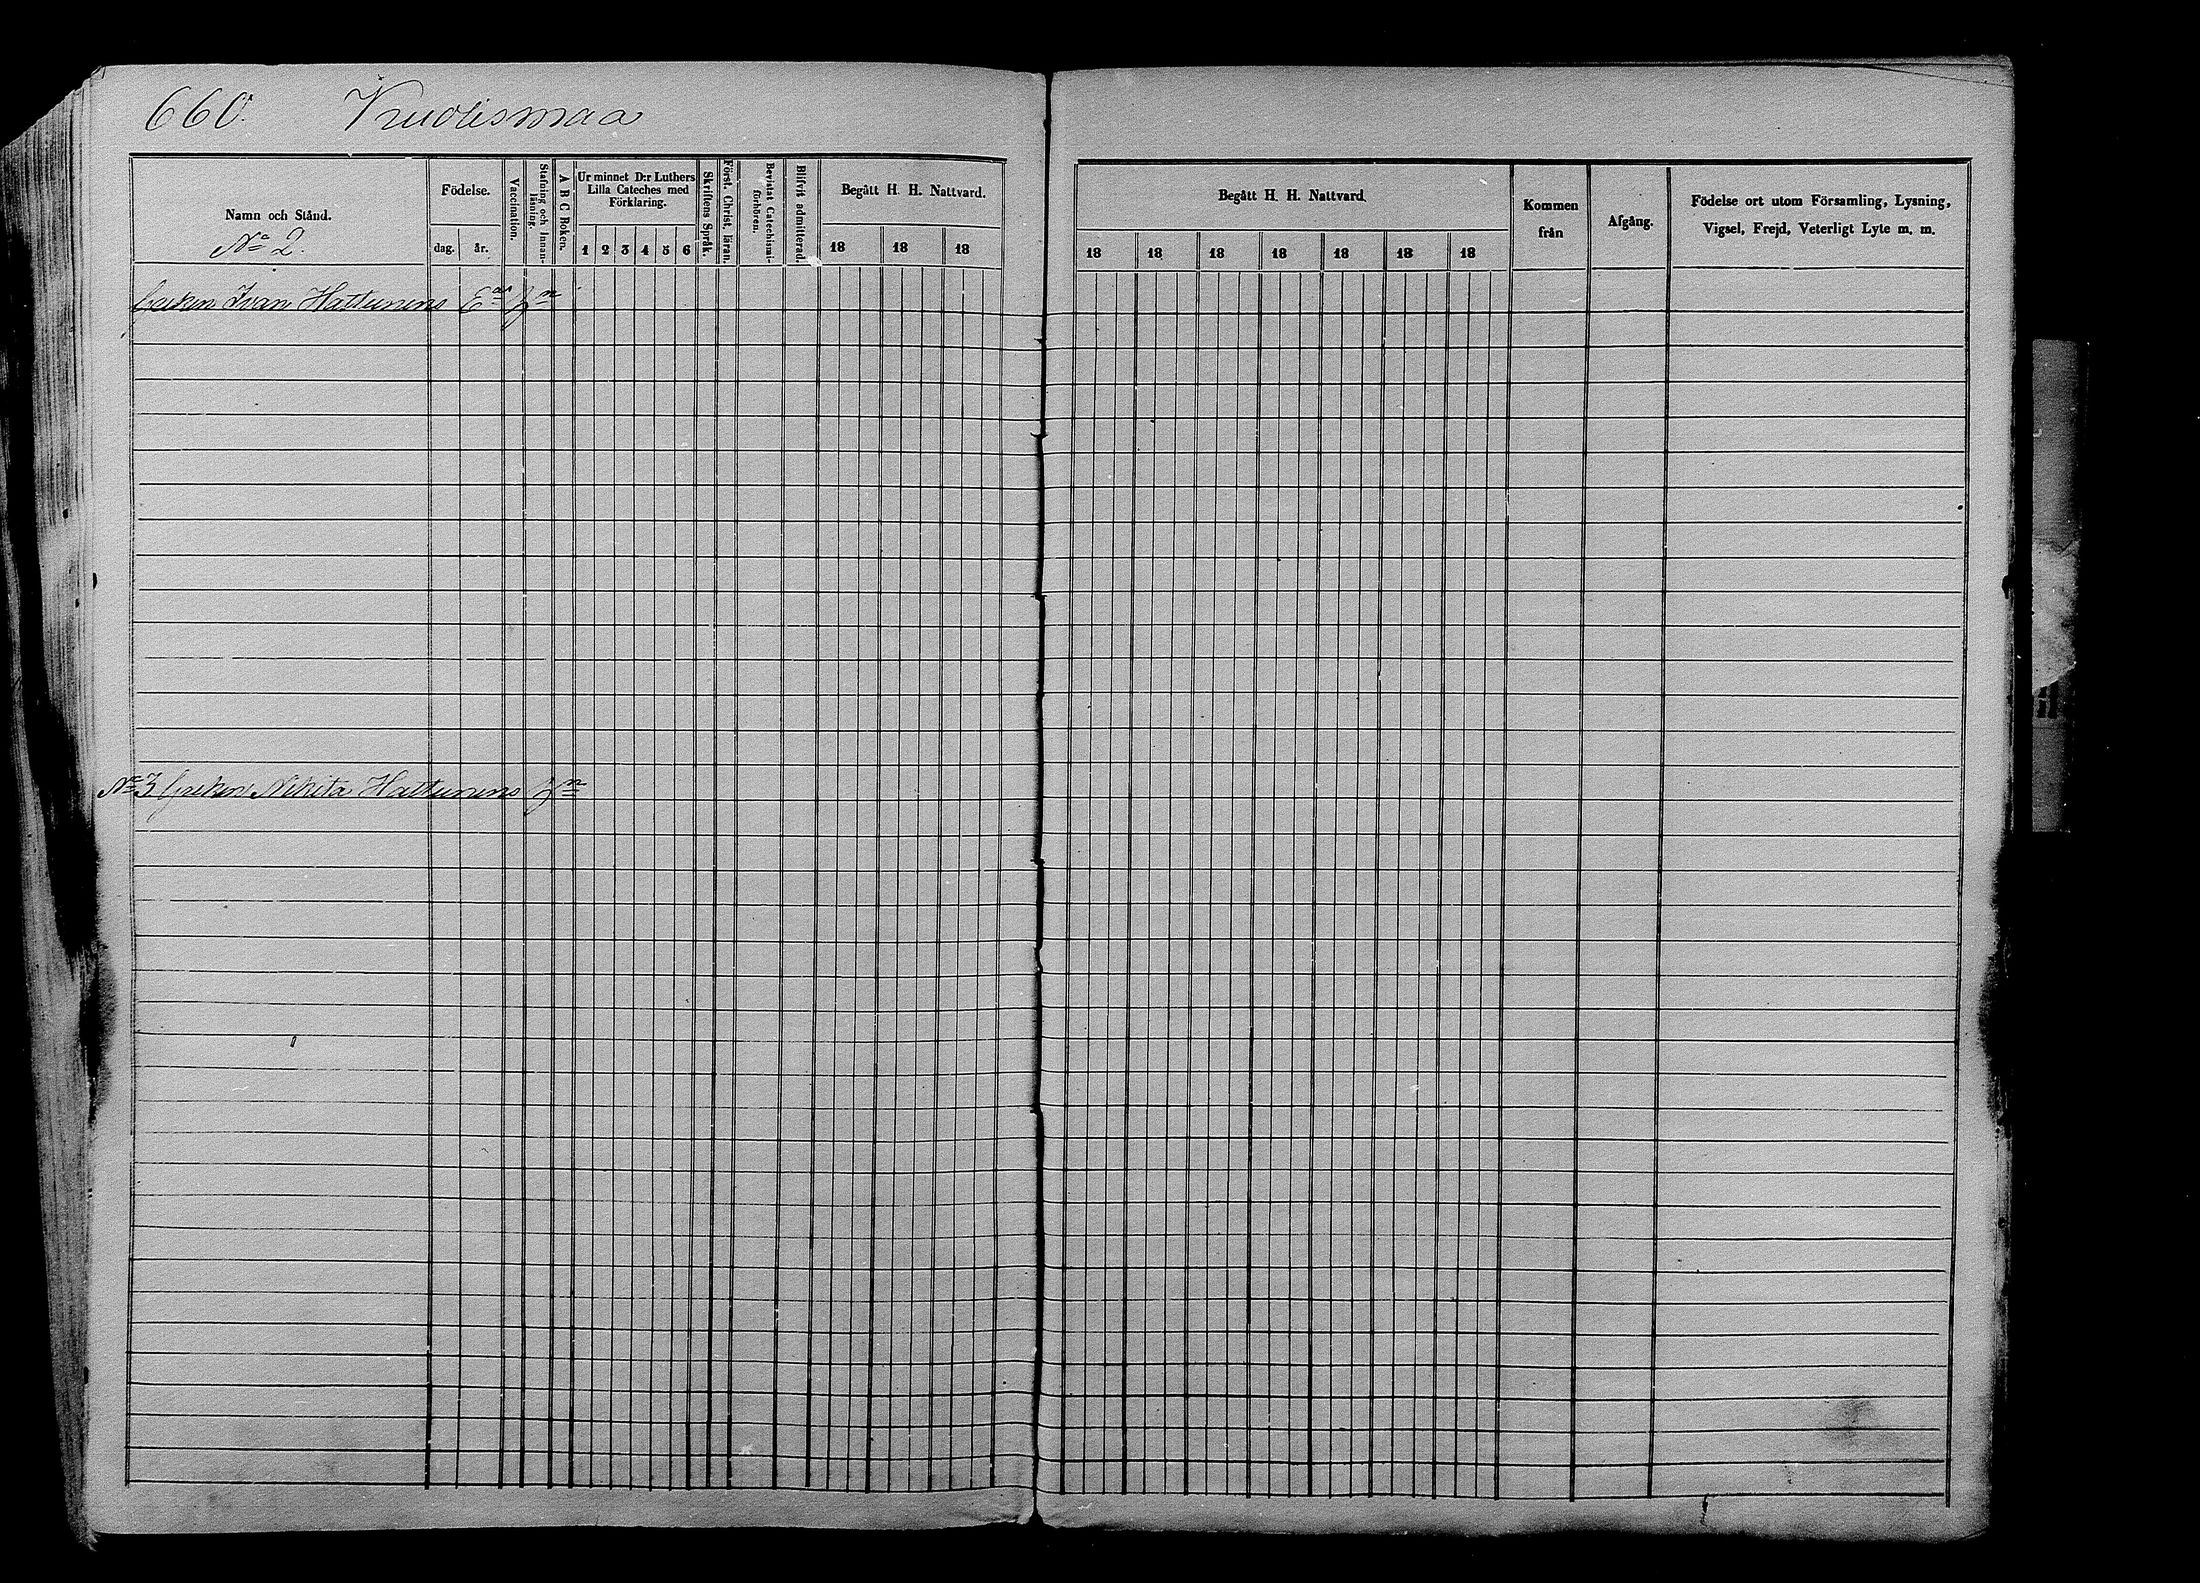 660. Kuolismaa
Namn och Stånd.
No 2.
Födelse.
dag. år.
Vaccination.
Stafning och Innan-
läsning.
A B C Boken.
Ur minnet D:r Luthers
Lilla Cateches med
Förklaring.
1 2 3 4 5 6
Skriftens Språk.
Först. Christ. läran.
Bevistat Catechismi-
förhören.
Blifvit admitterad.
Begått H. H. Nattvard.
18 18 18
Greken Ivan Hattunens
No 3 Greken Nikita Hattunens
Begått H. H. Nattvard.
18 18 18 18 18 18 18
Kommen
från
Afgång.
Födelse ort utom Församling, Lysning,
Vigsel, Frejd, Veterligt Lyte m. m.